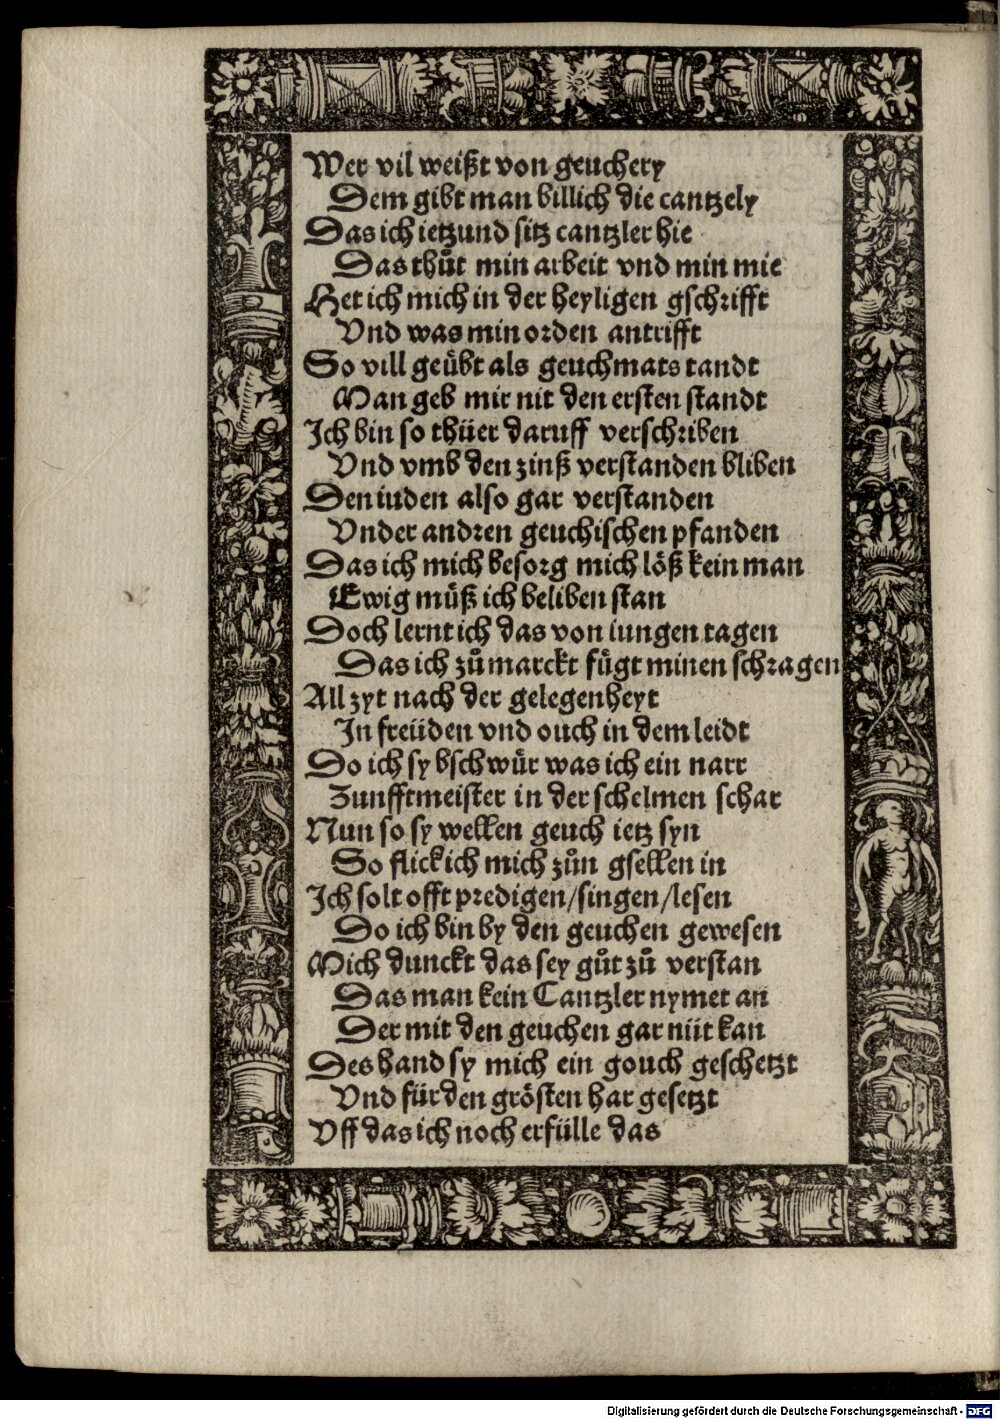 Wer vil weißt von geuchery
Dem gibt man billich die cantzely
Das ich ietzund sitz cantzler hie
Das thuͦt min arbeit vnd min mie
Het ich mich in der heyligen gschrifft
Vnd was min orden antrifft
So vill geuͤbt als geuchmats tandt
Man geb mir nit den ersten standt
Ich bin so thüer daruff verschriben
Vnd vmb den zinß verstanden bliben
Den iuden also gar verstanden
Vnder andren geuchischen pfanden
Das ich mich besorg mich loͤß kein man
Ewig muͤß ich beliben stan
Doch lernt ich das von iungen tagen
Das ich zuͦ marckt fuͤgt minen schragen
All zyt nach der gelegenheyt
In freüden vnd ouch in dem leidt
Do ich sy bschwuͤr was ich ein narr
Zunfftmeister in der schelmen schar
Nun so sy wellen geuch ietz syn
So flick ich mich zuͦn gsellen in
Ich solt offt predigen/singen/lesen
Do ich bin by den geuchen gewesen
Mich dunckt das sey guͦt zuͦ verstan
Das man kein Cantzler nymet an
Der mit den geuchen gar nüt kan
Des hand sy mich ein gouch geschetzt
Vnd für den groͤsten har gesetzt
Vff das ich noch erfülle das
Digitalisierung gefördert durch die Deutsche Forschungsgemeinschaft - DFG